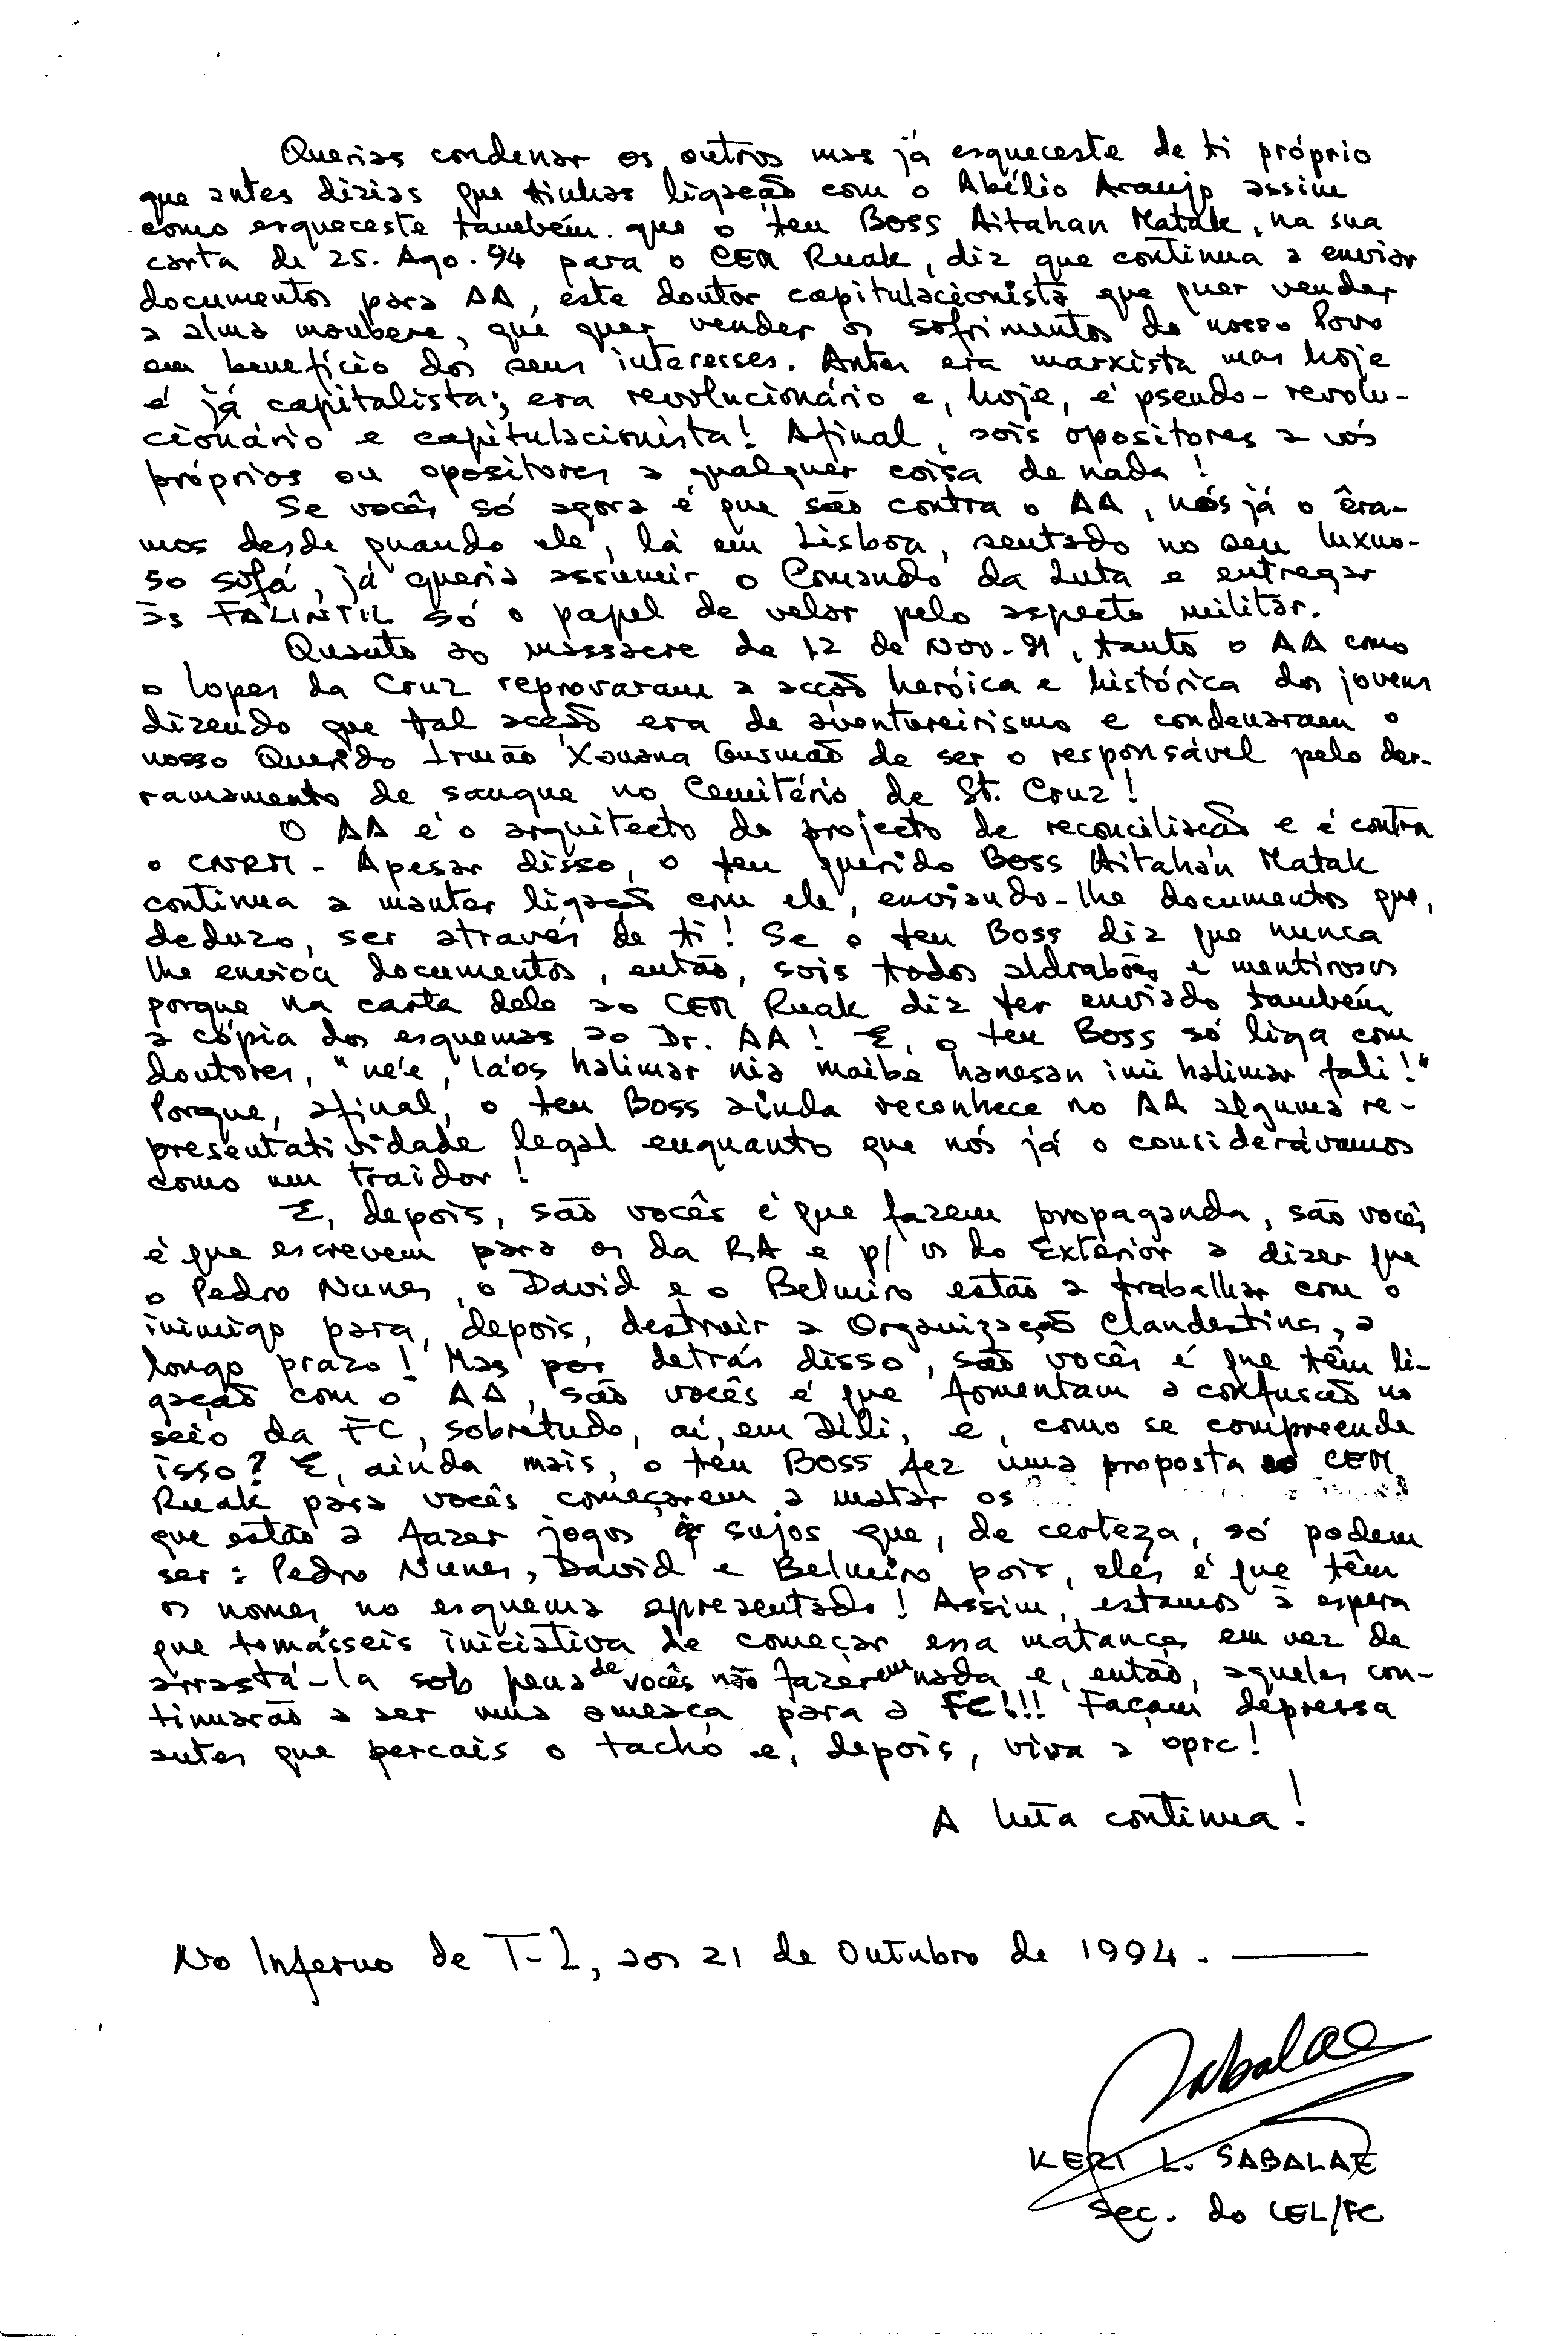 Querias condenar os outros mas já esqueceste de ti próprio
que antes dizias que tinhas ligação com o Abílio Araujo assim
como esqueceste também que o teu Boss Aitahan Matak, na sua
carta de 25. Ago. 94 para o CEM Ruak, diz que continua a enviar
documentos para AA, este doutor capitulacionista que quer vender
a alma maubere, que quer vender os sofrimentos do nosso Povo
em benefício dos seus interesses. Antes era marxista mas hoje
é já capitalista; era revolucionário e, hoje, é pseudo-revolu-
cionário e capitulacionista! Afinal, sois opositores a vós
próprios ou opositores a qualquer coisa de nada!
Se vocês só agora é que são contra o AA, nós já o éra-
mos desde quando ele, lá em Lisboa, sentado no seu luxuo-
so sofá, já queria assumir o Comando da Luta e entregar
às FALINTIL só o papel de velar pelo aspecto militar.
Quanto ao massacre de 12 de Nov-91, tanto o AA como
o Lopes da Cruz reprovaram a acção heróica e histórica dos jovens
dizendo que tal acção era de aventureirismo e condenaram o
nosso Querido Irmão Xanana Gusmão de ser o responsável pelo der-
ramamento de sangue no Cemitério de St. Cruz!
O AA é o arquitecto do projecto de reconciliação e é contra
o CNRM - Apesar disso, o teu querido Boss Aitahan Matak
continua a manter ligação com ele, enviando-lhe documentos que,
deduzo, ser através de ti! Se o teu Boss diz que nunca
lhe enviou documentos, então, sois todos aldrabões e mentirosos
porque na carta dele ao CEM Ruak diz ter enviado também
a cópia dos esquemas ao Dr. AA! E, o teu Boss só liga com
doutores, "ne'e, la'os halimar nia maibe hanesan imi halimar fali!"
Porque, afinal, o teu Boss ainda reconhece no AA alguma re-
presentatividade legal enquanto que nós já o considerávamos
como um traidor!
E, depois, são vocês é que fazem propaganda, são vocês
é que escrevem para os da RA e p/ os do Exterior a dizer que
o Pedro Nunes, o David e o Belmiro estão a trabalhar com o
inimigo para, depois, destruir a Organização Clandestina, a
longo prazo! Mas por detrás disso, são vocês é que têm li-
gação com o AA, são vocês é que fomentam a confusão no
seio da FC, sobretudo, aí, em Dili, e, como se compreende
isso? E, ainda mais, o teu Boss fez uma proposta ao CEM
Ruak para vocês começarem a matar os
que estão a fazer jogos sujos que, de certeza, só podem
ser: Pedro Nunes, David e Belmiro pois, eles é que têm
os nomes no esquema apresentado! Assim, estamos à espera
que tomásseis iniciativa de começar essa matança em vez de
arrastá-la sob pena de vocês não fazerem nada e, então, aqueles con-
tinuarão a ser uma ameaça para a FC!!! Façam depressa
antes que percais o tacho e, depois, viva a oprc!
A luta continua!
No Inferno de T-L, aos 21 de Outubro de 1994.
Sabalae
KERI L. SABALAE
Sec. do CEL/FC